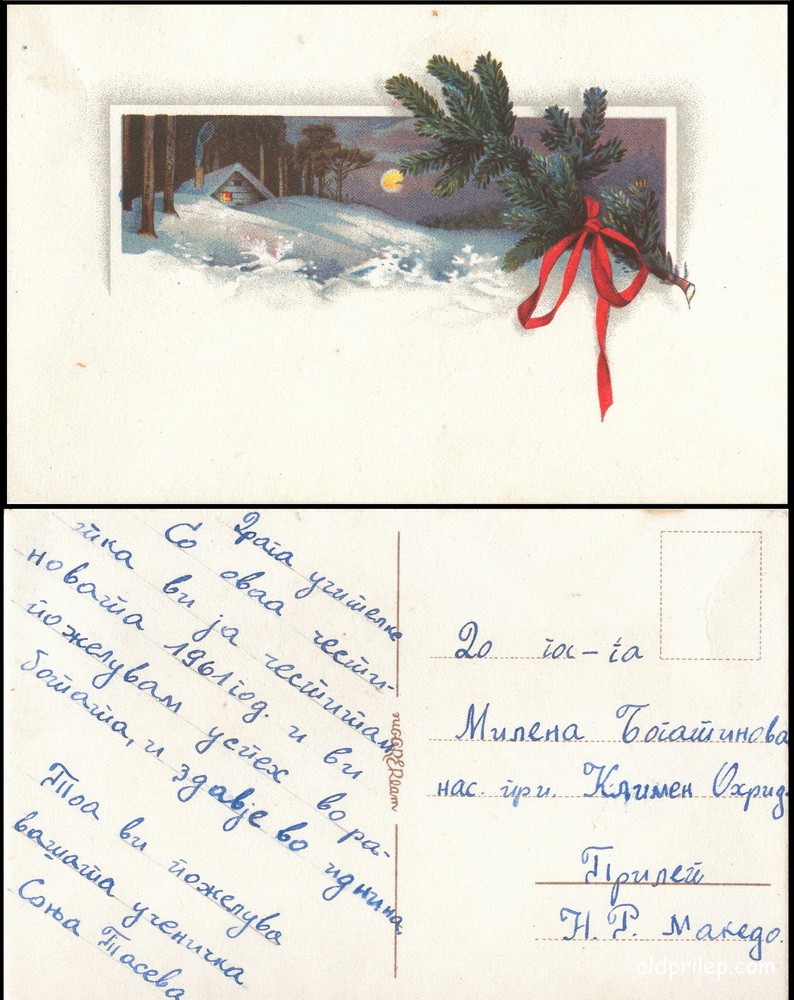 Драга учителке
Со оваа чести-
тка ви ја честитам
новата 1961 год. и ви
пожелувам успех во ра-
ботата, и здавје во иднина.
Тоа ви пожелува
вашата ученичка
Соња Тасева
До гос-ѓа
Милена Богатинова
нас. при. Климен Охрид.
Прилеп
Н. Р. Македо.
oldprilep.com